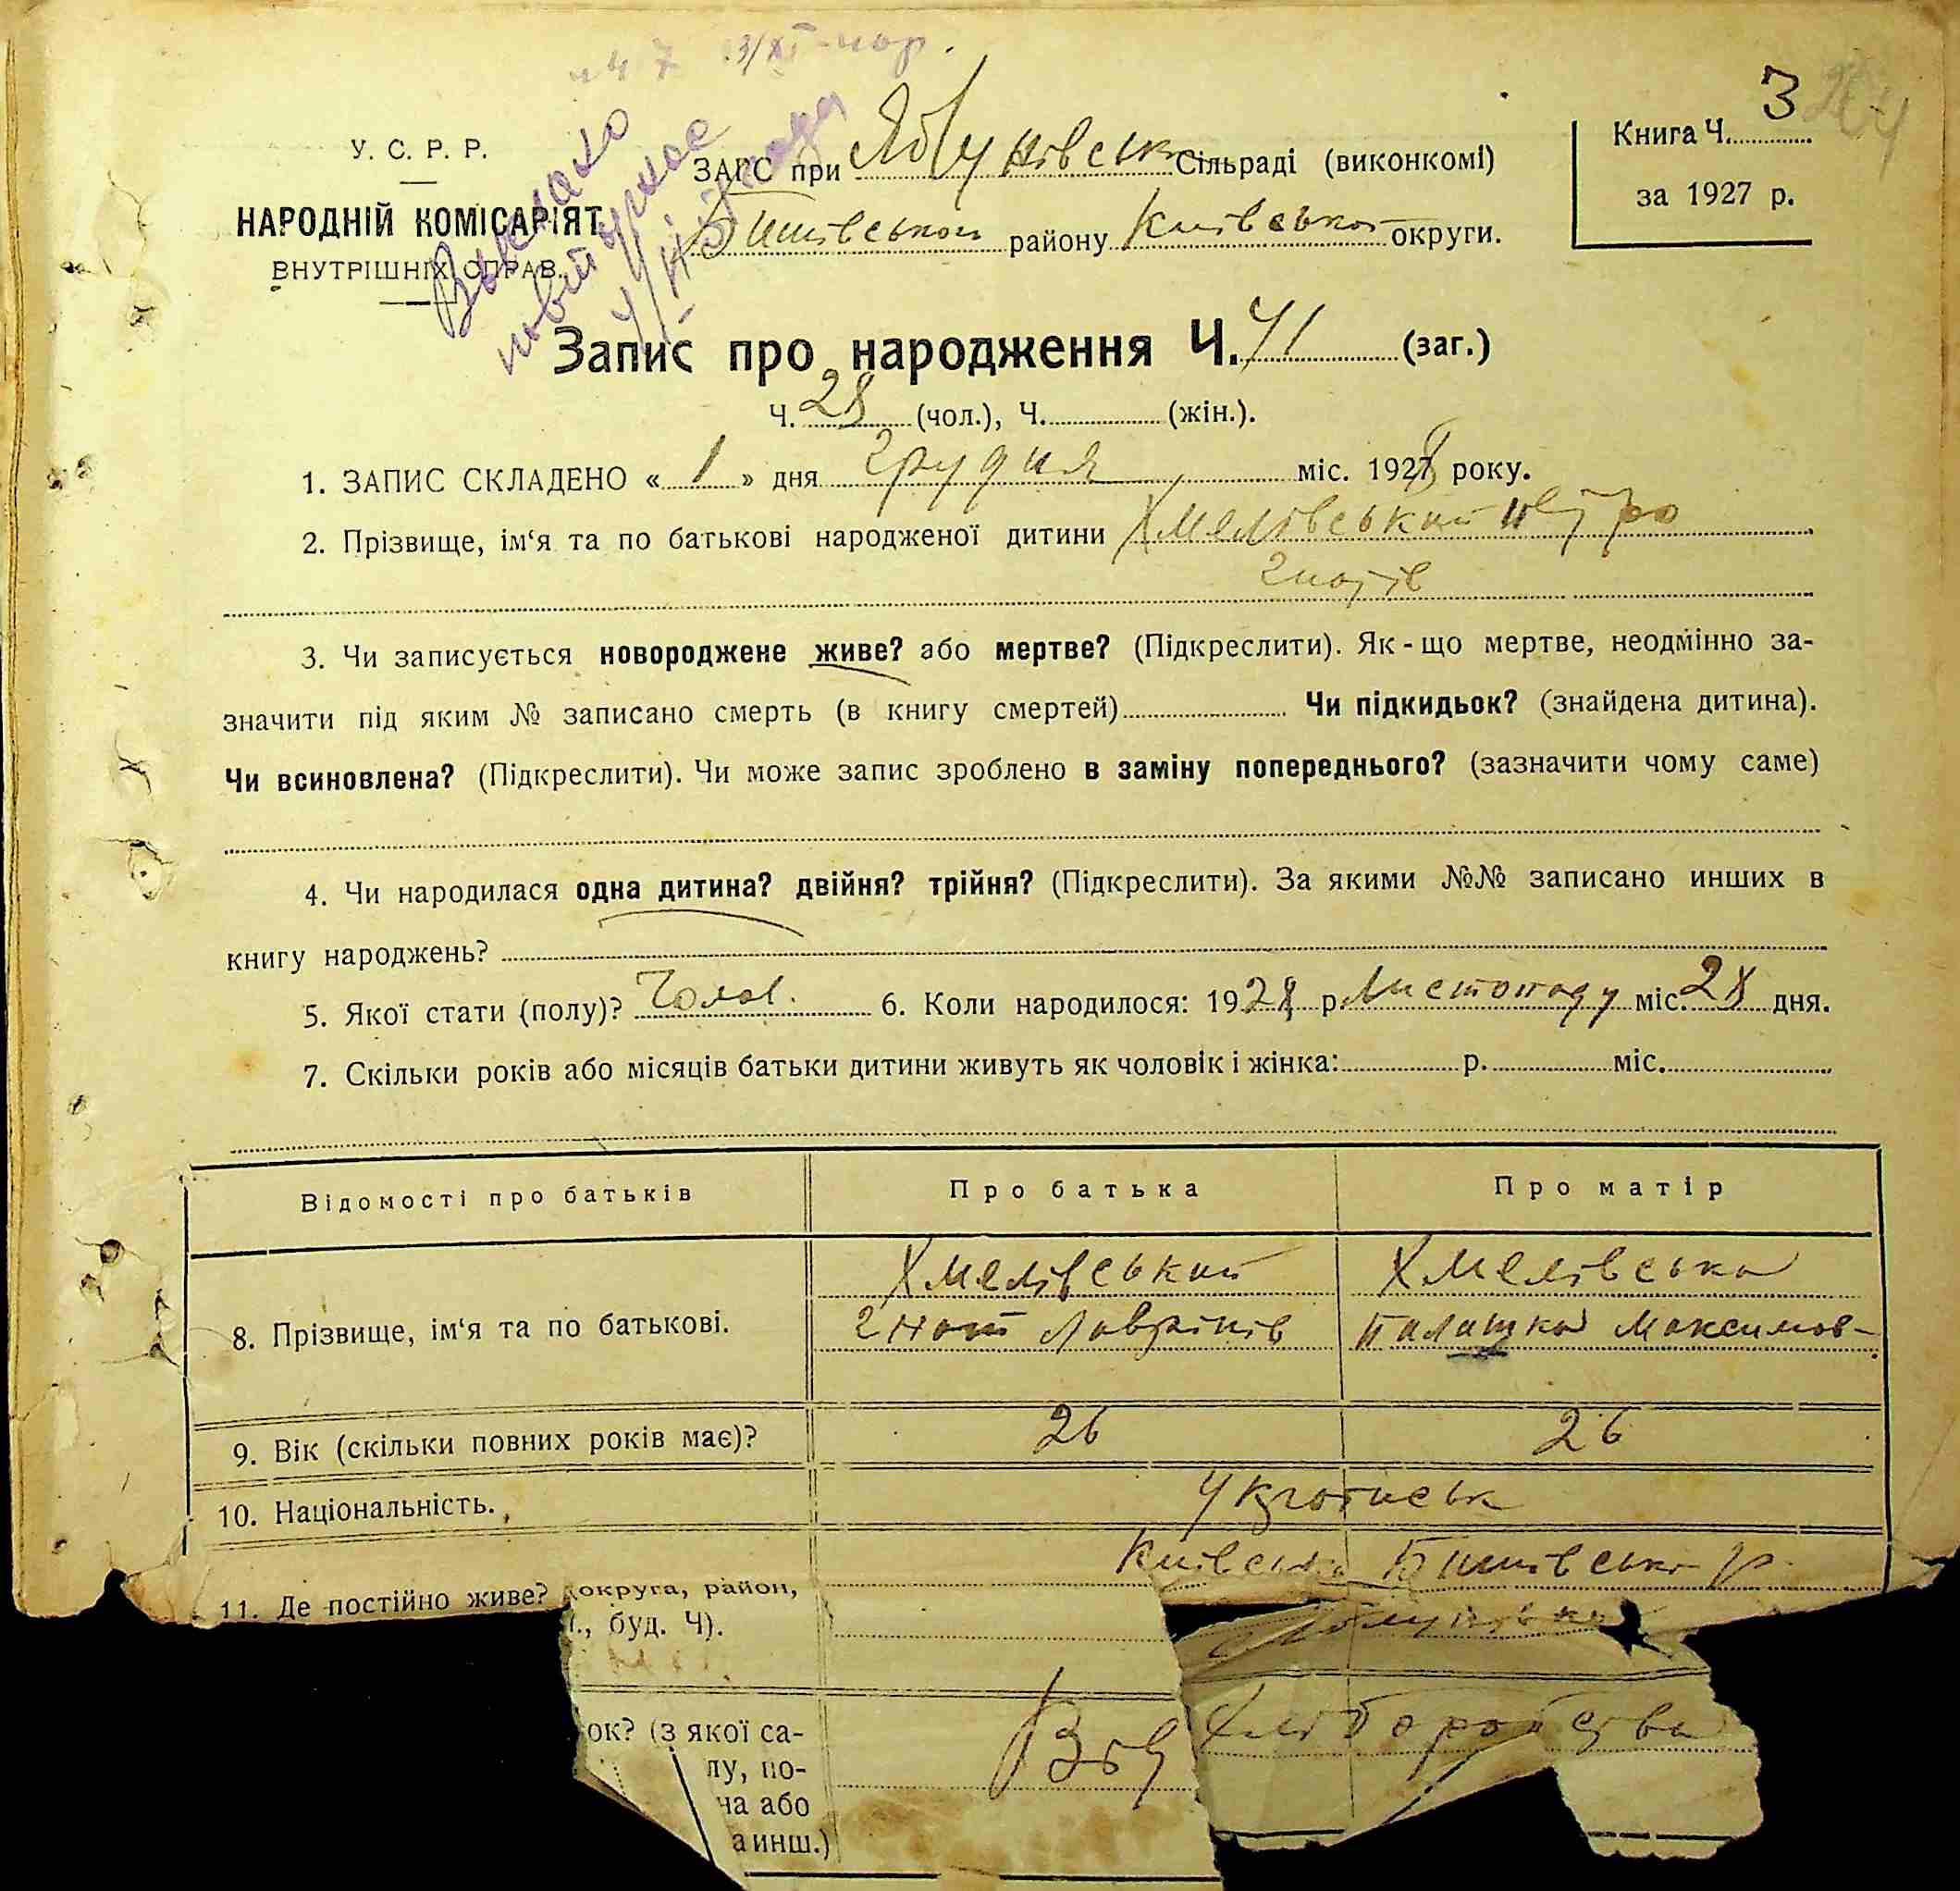 У. С. Р. Р.
НАРОДНІЙ КОМІСАРІЯТ
ВНУТРІШНІХ СПРАВ.
ЗАГС при Ябłунівськ Сільраді (виконкомі)
Бишівської району Київської округи.
Книга Ч. 3
за 1927 р.
Запис про народження Ч. 71 (заг.)
Ч. 28 (чол.), Ч. (жін.).
1. ЗАПИС СКЛАДЕНО « 1 » дня Грудня міс. 1928 року.
2. Прізвище, ім‘я та по батькові народженої дитини Хмелівський Петро
Гнатів
3. Чи записується новороджене живе? або мертве? (Підкреслити). Як-що мертве, неодмінно за-
значити під яким № записано смерть (в книгу смертей) Чи підкидьок? (знайдена дитина).
Чи всиновлена? (Підкреслити). Чи може запис зроблено в заміну попереднього? (зазначити чому саме)
4. Чи народилася одна дитина? двійня? трійня? (Підкреслити). За якими №№ записано инших в
книгу народжень?
5. Якої стати (полу)? Чолов. 6. Коли народилося: 1928 р. Листопаду міс. 28 дня.
7. Скільки років або місяців батьки дитини живуть як чоловік і жінка: р. міс.
Відомості про батьків Про батька Про матір
Хмелівський Хмелівська
8. Прізвище, ім‘я та по батькові. Гнат Лаврінів Палажка Максимов-
9. Вік (скільки повних років має)? 26 26
10. Національність. Українськ
Київська Бишівська р.
11. Де постійно живе? (округа, район,
., буд. Ч).
ок? (з якої са- Від хліборобства
лу, по-
на або
а инш.)